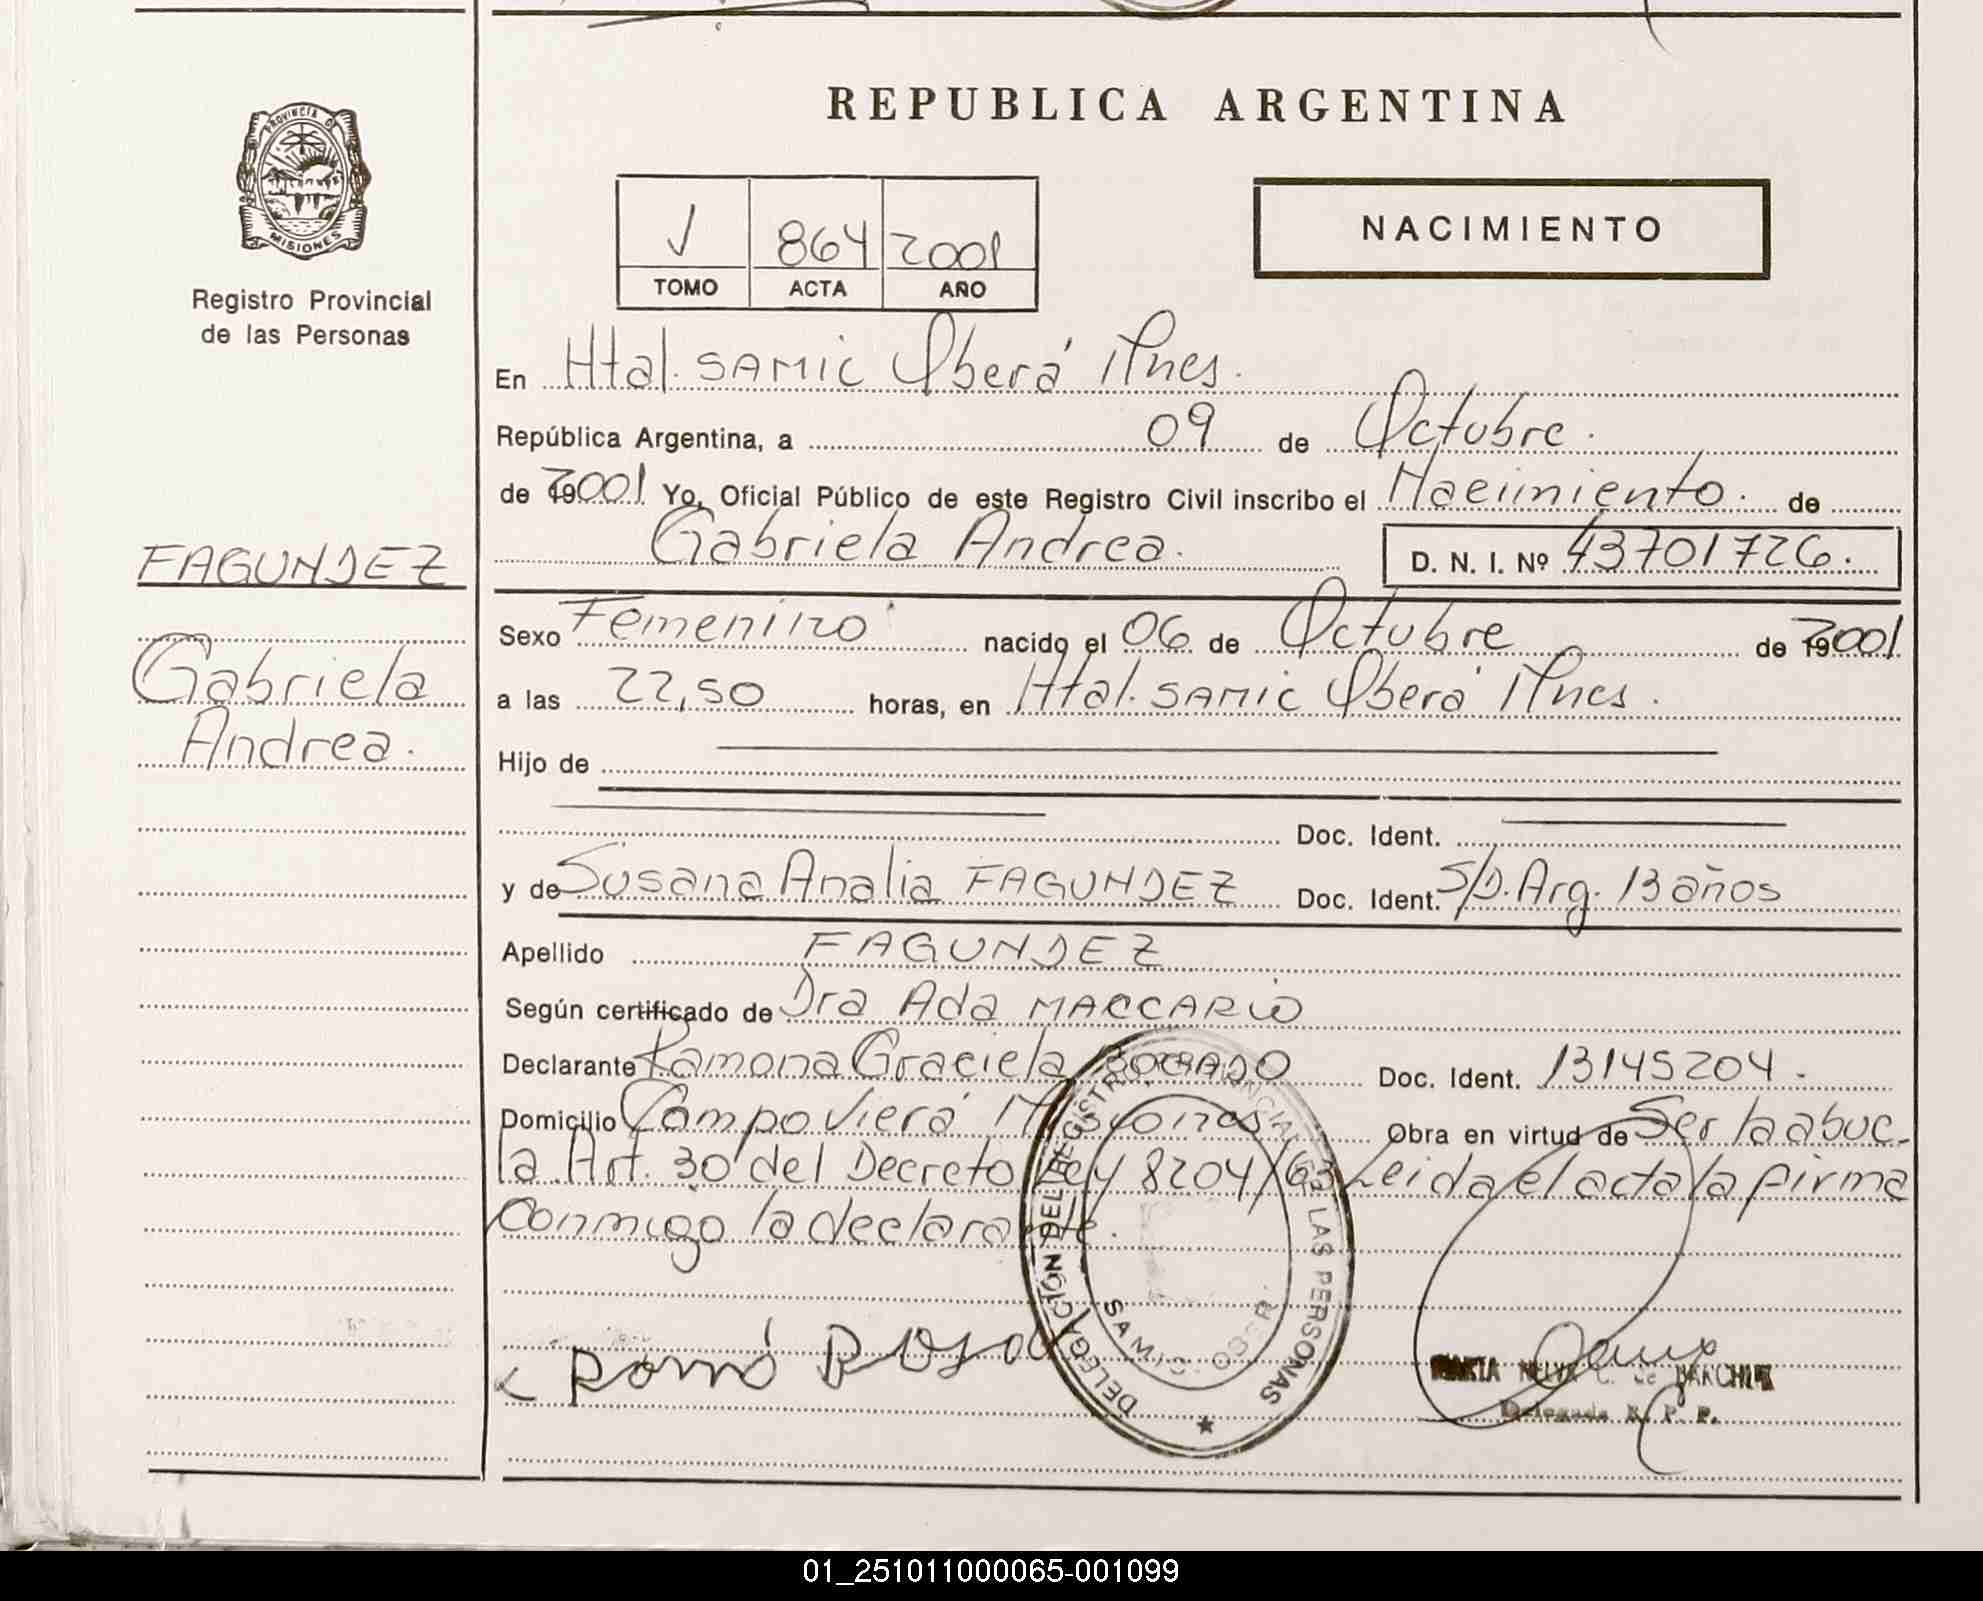 REPUBLICA ARGENTINA
PROVINCIA D
MISIONES
Registro Provincial
de las Personas
V 864 2001
TOMO ACTA AÑO
NACIMIENTO
En Htal. SAMIC Oberá Mnes.
República Argentina, a 09 de Octubre.
de 2001 Yo, Oficial Público de este Registro Civil inscribo el Nacimiento. de
Gabriela Andrea. D. N. I. Nº 43701726.
FAGUNDEZ
Gabriela
Andrea.
Sexo Femenino nacido el 06 de Octubre de 2001
a las 22,50 horas, en Htal. SAMIC Oberá Mnes.
Hijo de
Doc. Ident.
y de Susana Analia FAGUNDEZ Doc. Ident. S/D. Arg. 13 años
Apellido FAGUNDEZ
Según certificado de Dra Ada MACCARIO
Declarante Ramona Graciela BOGADO Doc. Ident. 13145204.
Domicilio Campo Viera Misiones Obra en virtud de Ser la abue-
la. Art. 30 del Decreto Ley 8204/63 Leida el acta la firma
Conmigo la declarante.
DELEGACIÓN DEL REGISTRO PROVINCIAL DE LAS PERSONAS
SAMIC. OBER
MARTA C. de
Delegada R. P. P.
01_251011000065-001099